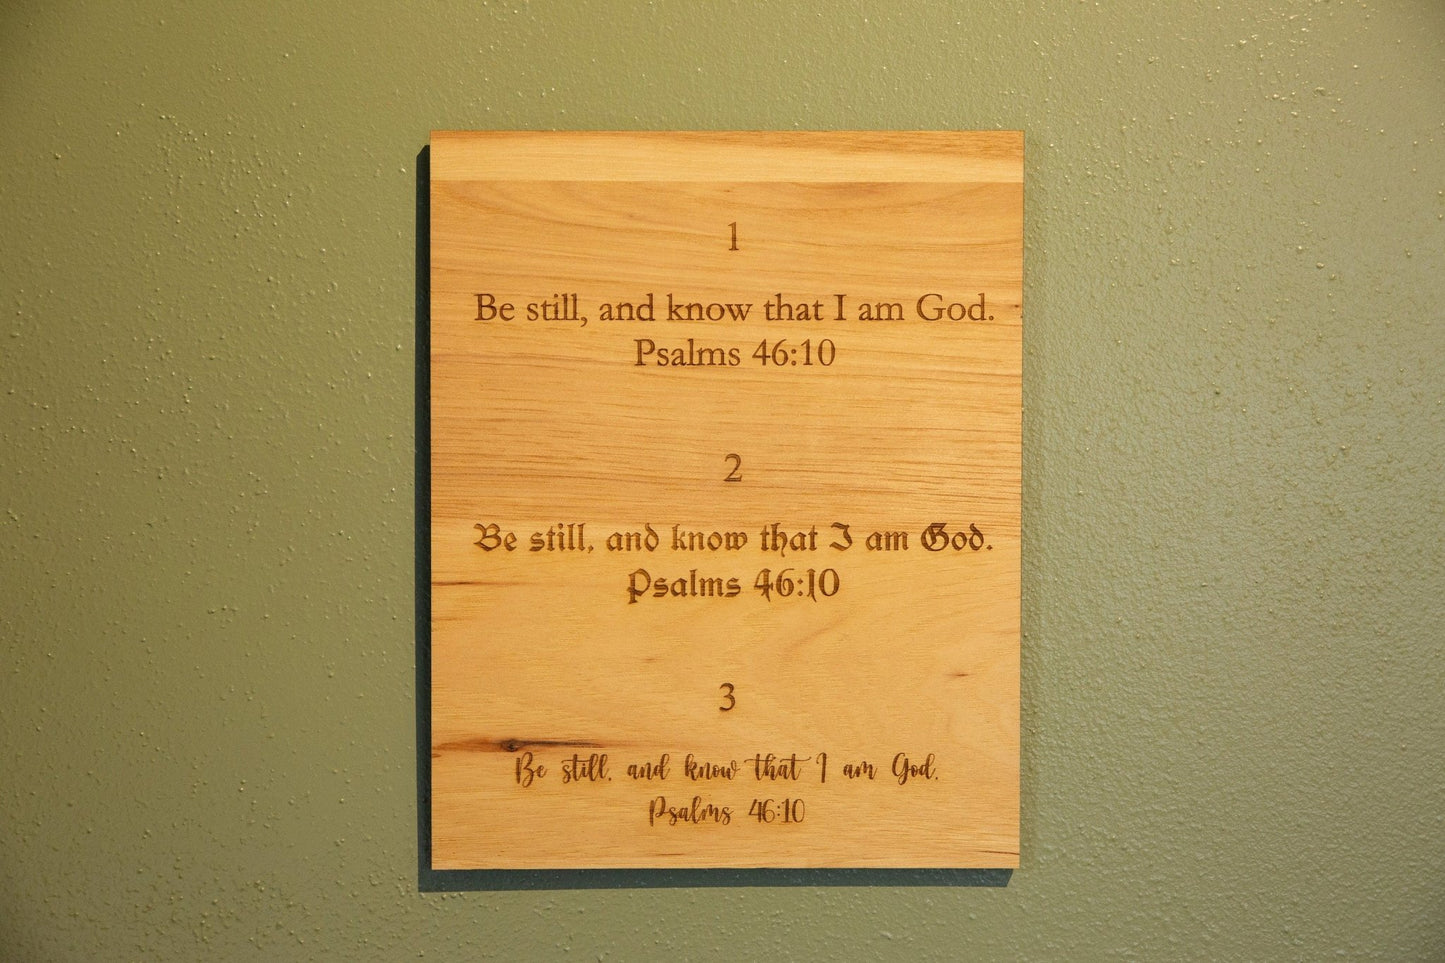 1
Be still, and know that I am God.
Psalms 46:10
2
Be still, and know that I am God.
Psalms 46:10
3
Be still, and know that I am God.
Psalms 46:10